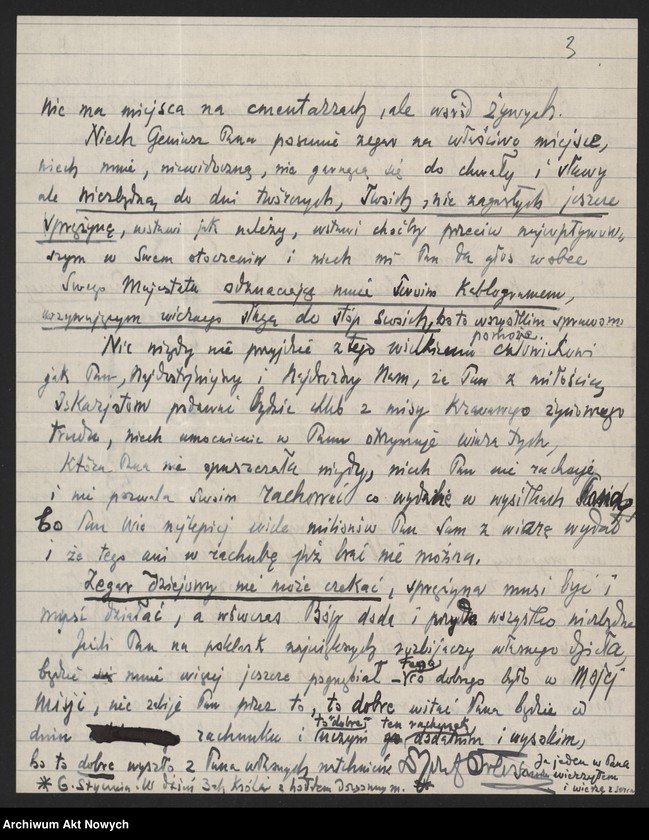 3
Nie ma miejsca na cmentarzach, ale wśród żywych.
Niech Geniusz Pana posunie zegar na właściwe miejsce,
niech mnie, niewidoczną, nie garnącą się do chwały i sławy
ale niezbędną do dni twórczych, Twoich, nie zagasłych jeszcze
sprężynę, wstawi jak należy, wstawi choćby przeciw najwpływow-
szym w Swem otoczeniu i niech mi Pan da głos wobec
Swego Majestatu odznaczając mnie Swoim Kablogramem,
wzywającym wiernego sługę do stóp Swoich, bo to wszystkim sprawom
pomoże.
Nic nigdy nie przyjdzie z tego wielkiemu człowiekowi
jak Pan, Najdostojniejszy i Najdroższy Nam, że Pan z miłością
Iskarjotom podawać będzie chleb z misy krwawego życiowego
trudu, niech umocnienie w Panu otrzymuje wiara tych,
Która Pana nie opuszczała nigdy, niech Pan nie rachuje
i nie pozwala Swoim rachować co wydane w wysiłkach
bo Pan wie najlepiej wiele milionów Pan Sam z wiarą wydał
i że tego ani w rachubę już brać nie można.
Zegar dziejowy nie może czekać, sprężyna musi być i
musi działać, a wówczas Bóg doda i przyda wszystko niezbędne
Jeśli Pan na poklask największych rozbijaczy własnego dzieła,
będzie mnie więcej jeszcze pognębiał - to co dobrego było w Mojej
Misji, nie zabije Pan przez to, to dobre witać Pana będzie w
dniu rachunku i "to dobre" ten rachunek uczyni dodatnim i wysokim,
bo to dobre wyszło z Pana własnych natchnień Ja jeden w Pana wierzyłem
i wierzę z serca
* 6. Stycznia. W dzień 3ch Króli z hołdem Dozgonnym. *
Archiwum Akt Nowych